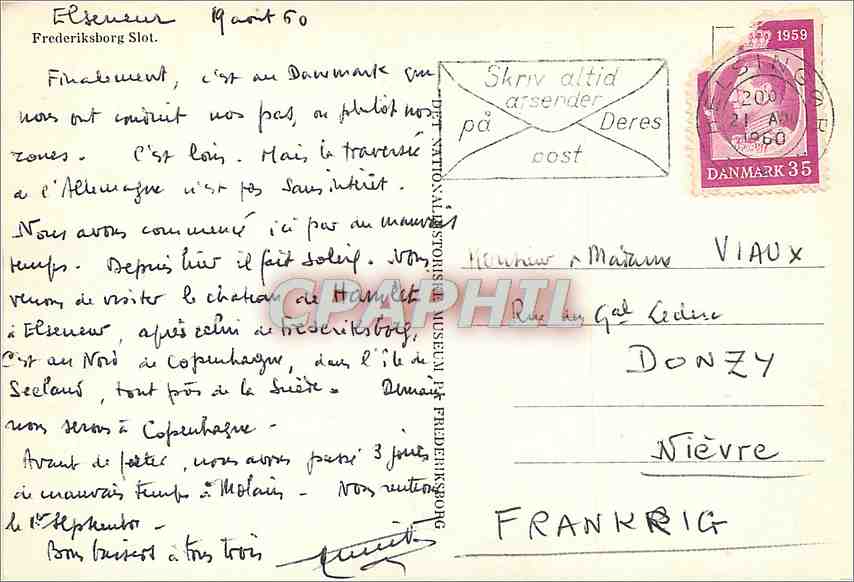 Elseneur 19 aout 60
Frederiksborg Slot.
Finalement, c'est au Danemark que
nous ont conduit nos pas, ou plutôt nos
roues. C'est loin. Mais la traversée
de l'Allemagne n'est pas sans intérêt.
Nous avons commencé ici par du mauvais
temps. Depuis hier il fait soleil. Nous
venons de visiter le chateau de Hamlet
à Elseneur, après celui de Frederiksborg,
C'est au Nord de Copenhague, dans l'île de
Seeland, tout près de la Suède. Demain
nous serons à Copenhague -
Avant de partir, nous avons passé 3 jours
de mauvais temps à - Nous rentrons
le 1er Septembre -
Bons baisers à tous trois
DET NATIONALHISTORISKE MUSEUM PAA FREDERIKSBORG
Skriv altid
afsender
på Deres
post
1959
HELSINGØR
21
1960
DANMARK 35
Monsieur & Madame VIAUX
Rue du Gal Leclerc
DONZY
Nièvre
FRANKRIG
CPAPHIL